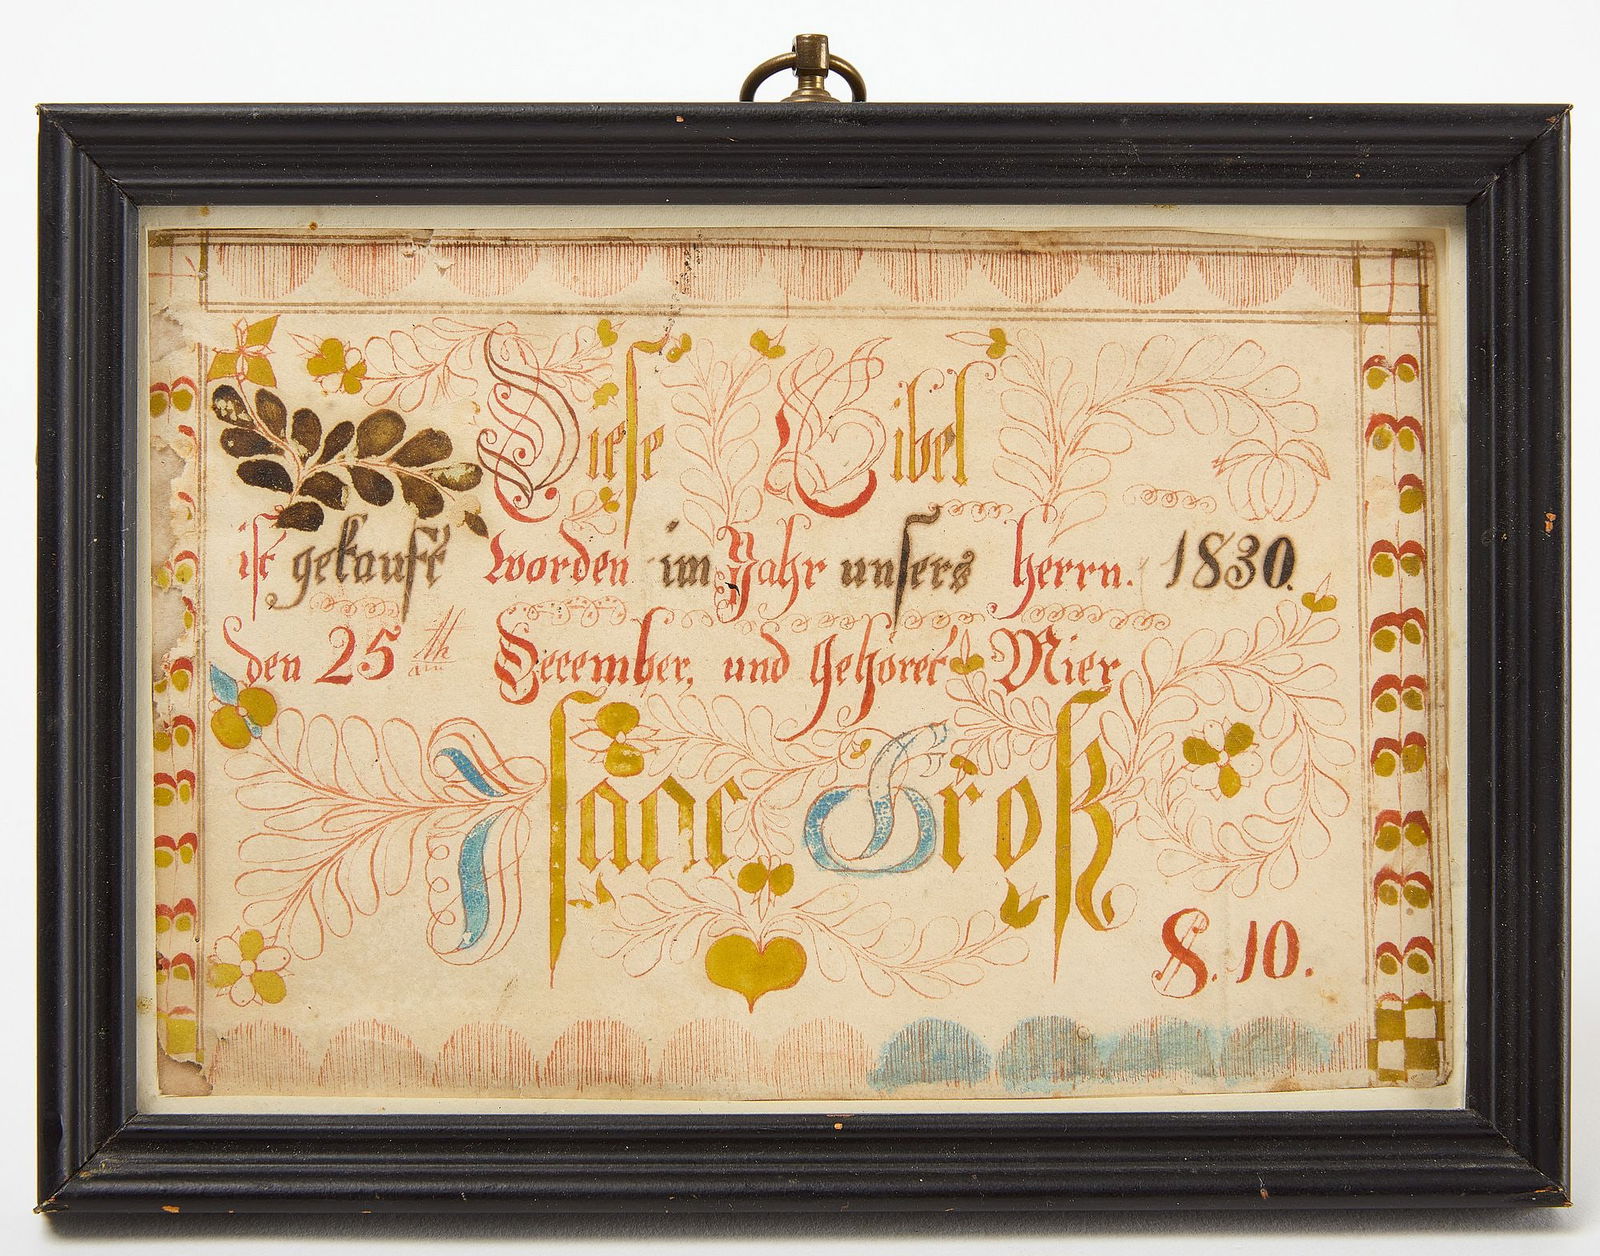 Diese Bibel
ist gekauft worden im Jahr unsers herrn. 1830.
den 25th am December, und Gehöret Mier
Isaac Groß
S. 10.